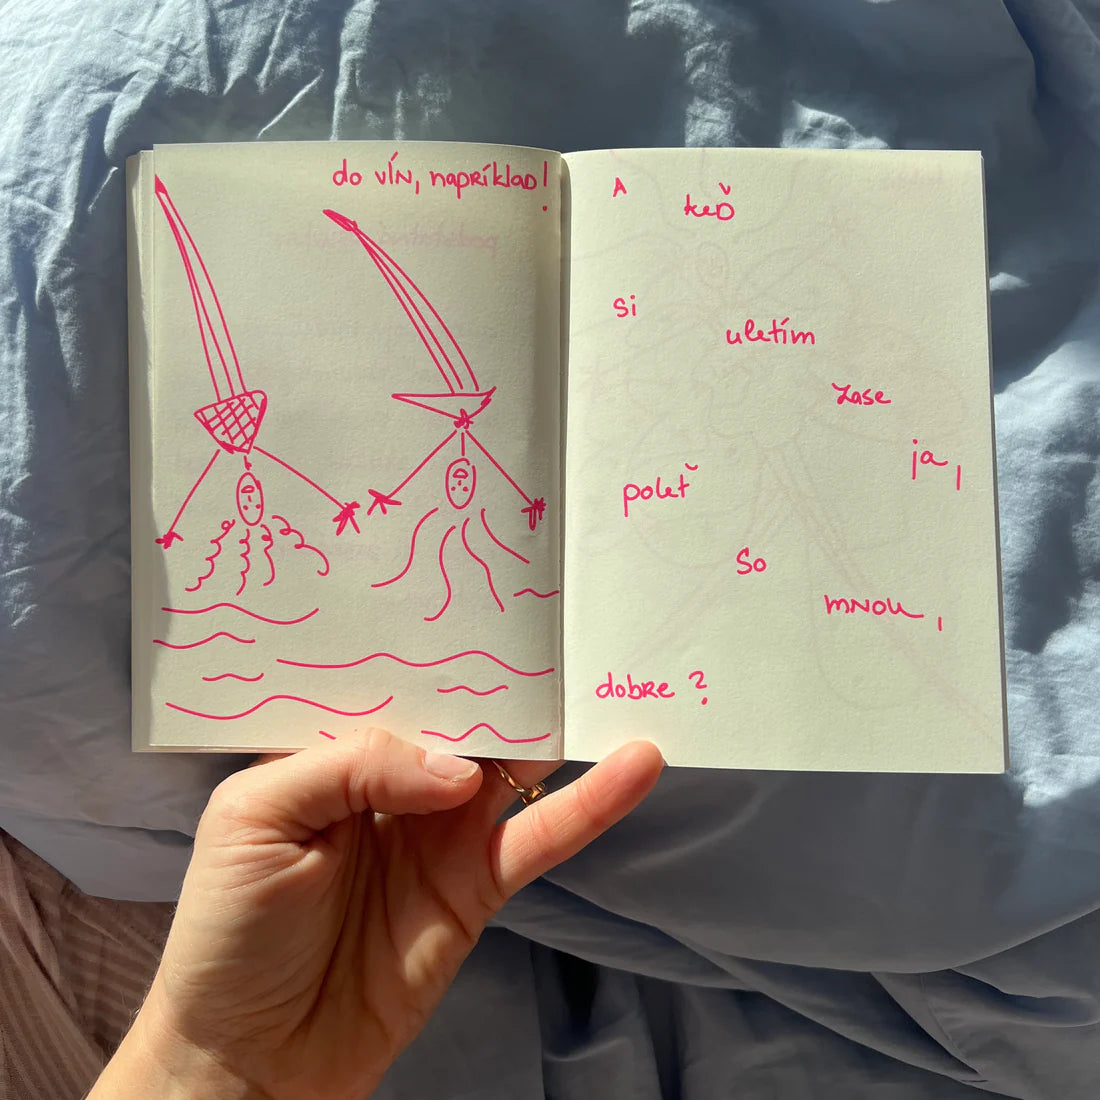 do vĺn, napríklad!
A
keď
si
uletím
zase
ja,
poleť
so
mnou,
dobre?